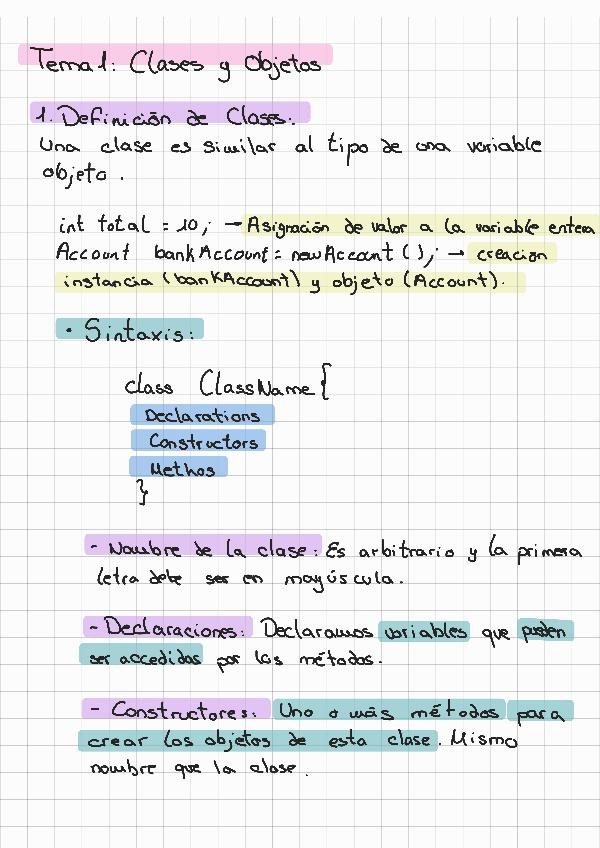 Tema 1: Clases y Objetos
1. Definición de Clases:
Una clase es similar al tipo de una variable
objeto.
int total = 10; → Asignación de valor a la variable entera
Account bankAccount = new Account (); → creación
instancia (bankAccount) y objeto (Account).
• Sintaxis:
class ClassName {
Declarations
Constructors
Methos
}
- Nombre de la clase: Es arbitrario y la primera
letra debe ser en mayúscula.
- Declaraciones: Declaramos variables que pueden
ser accedidas por los métodos.
- Constructores: Uno o más métodos para
crear los objetos de esta clase. Mismo
nombre que la clase.